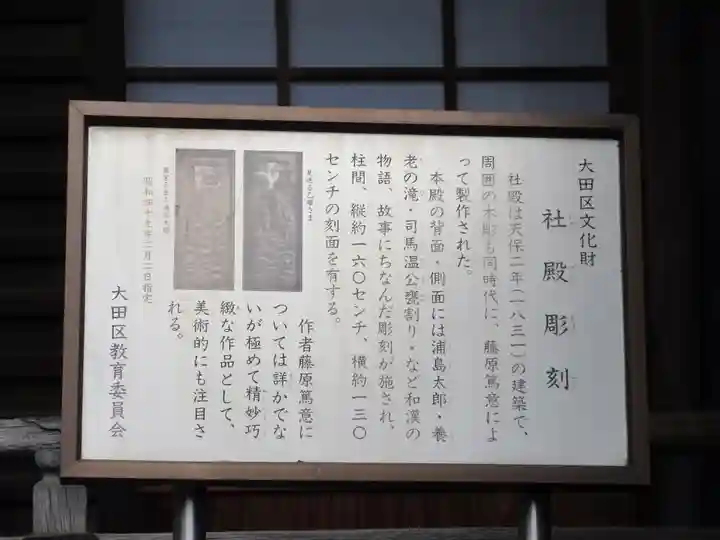 大田区文化財
社殿彫刻
社殿は天保二年(一八三一)の建築で、
周囲の木彫も同時代に、藤原篤意によ
って製作された。
本殿の背面・側面には浦島太郎・養
老の滝・司馬温公甕割り・など和漢の
物語、故事にちなんだ彫刻が施され、
柱間、縦約一六〇センチ、横約一三〇
センチの刻面を有する。
作者藤原篤意に
ついては詳かでな
いが極めて精妙巧
緻な作品として、
美術的にも注目さ
れる。
昭和四十九年二月二日指定
大田区教育委員会